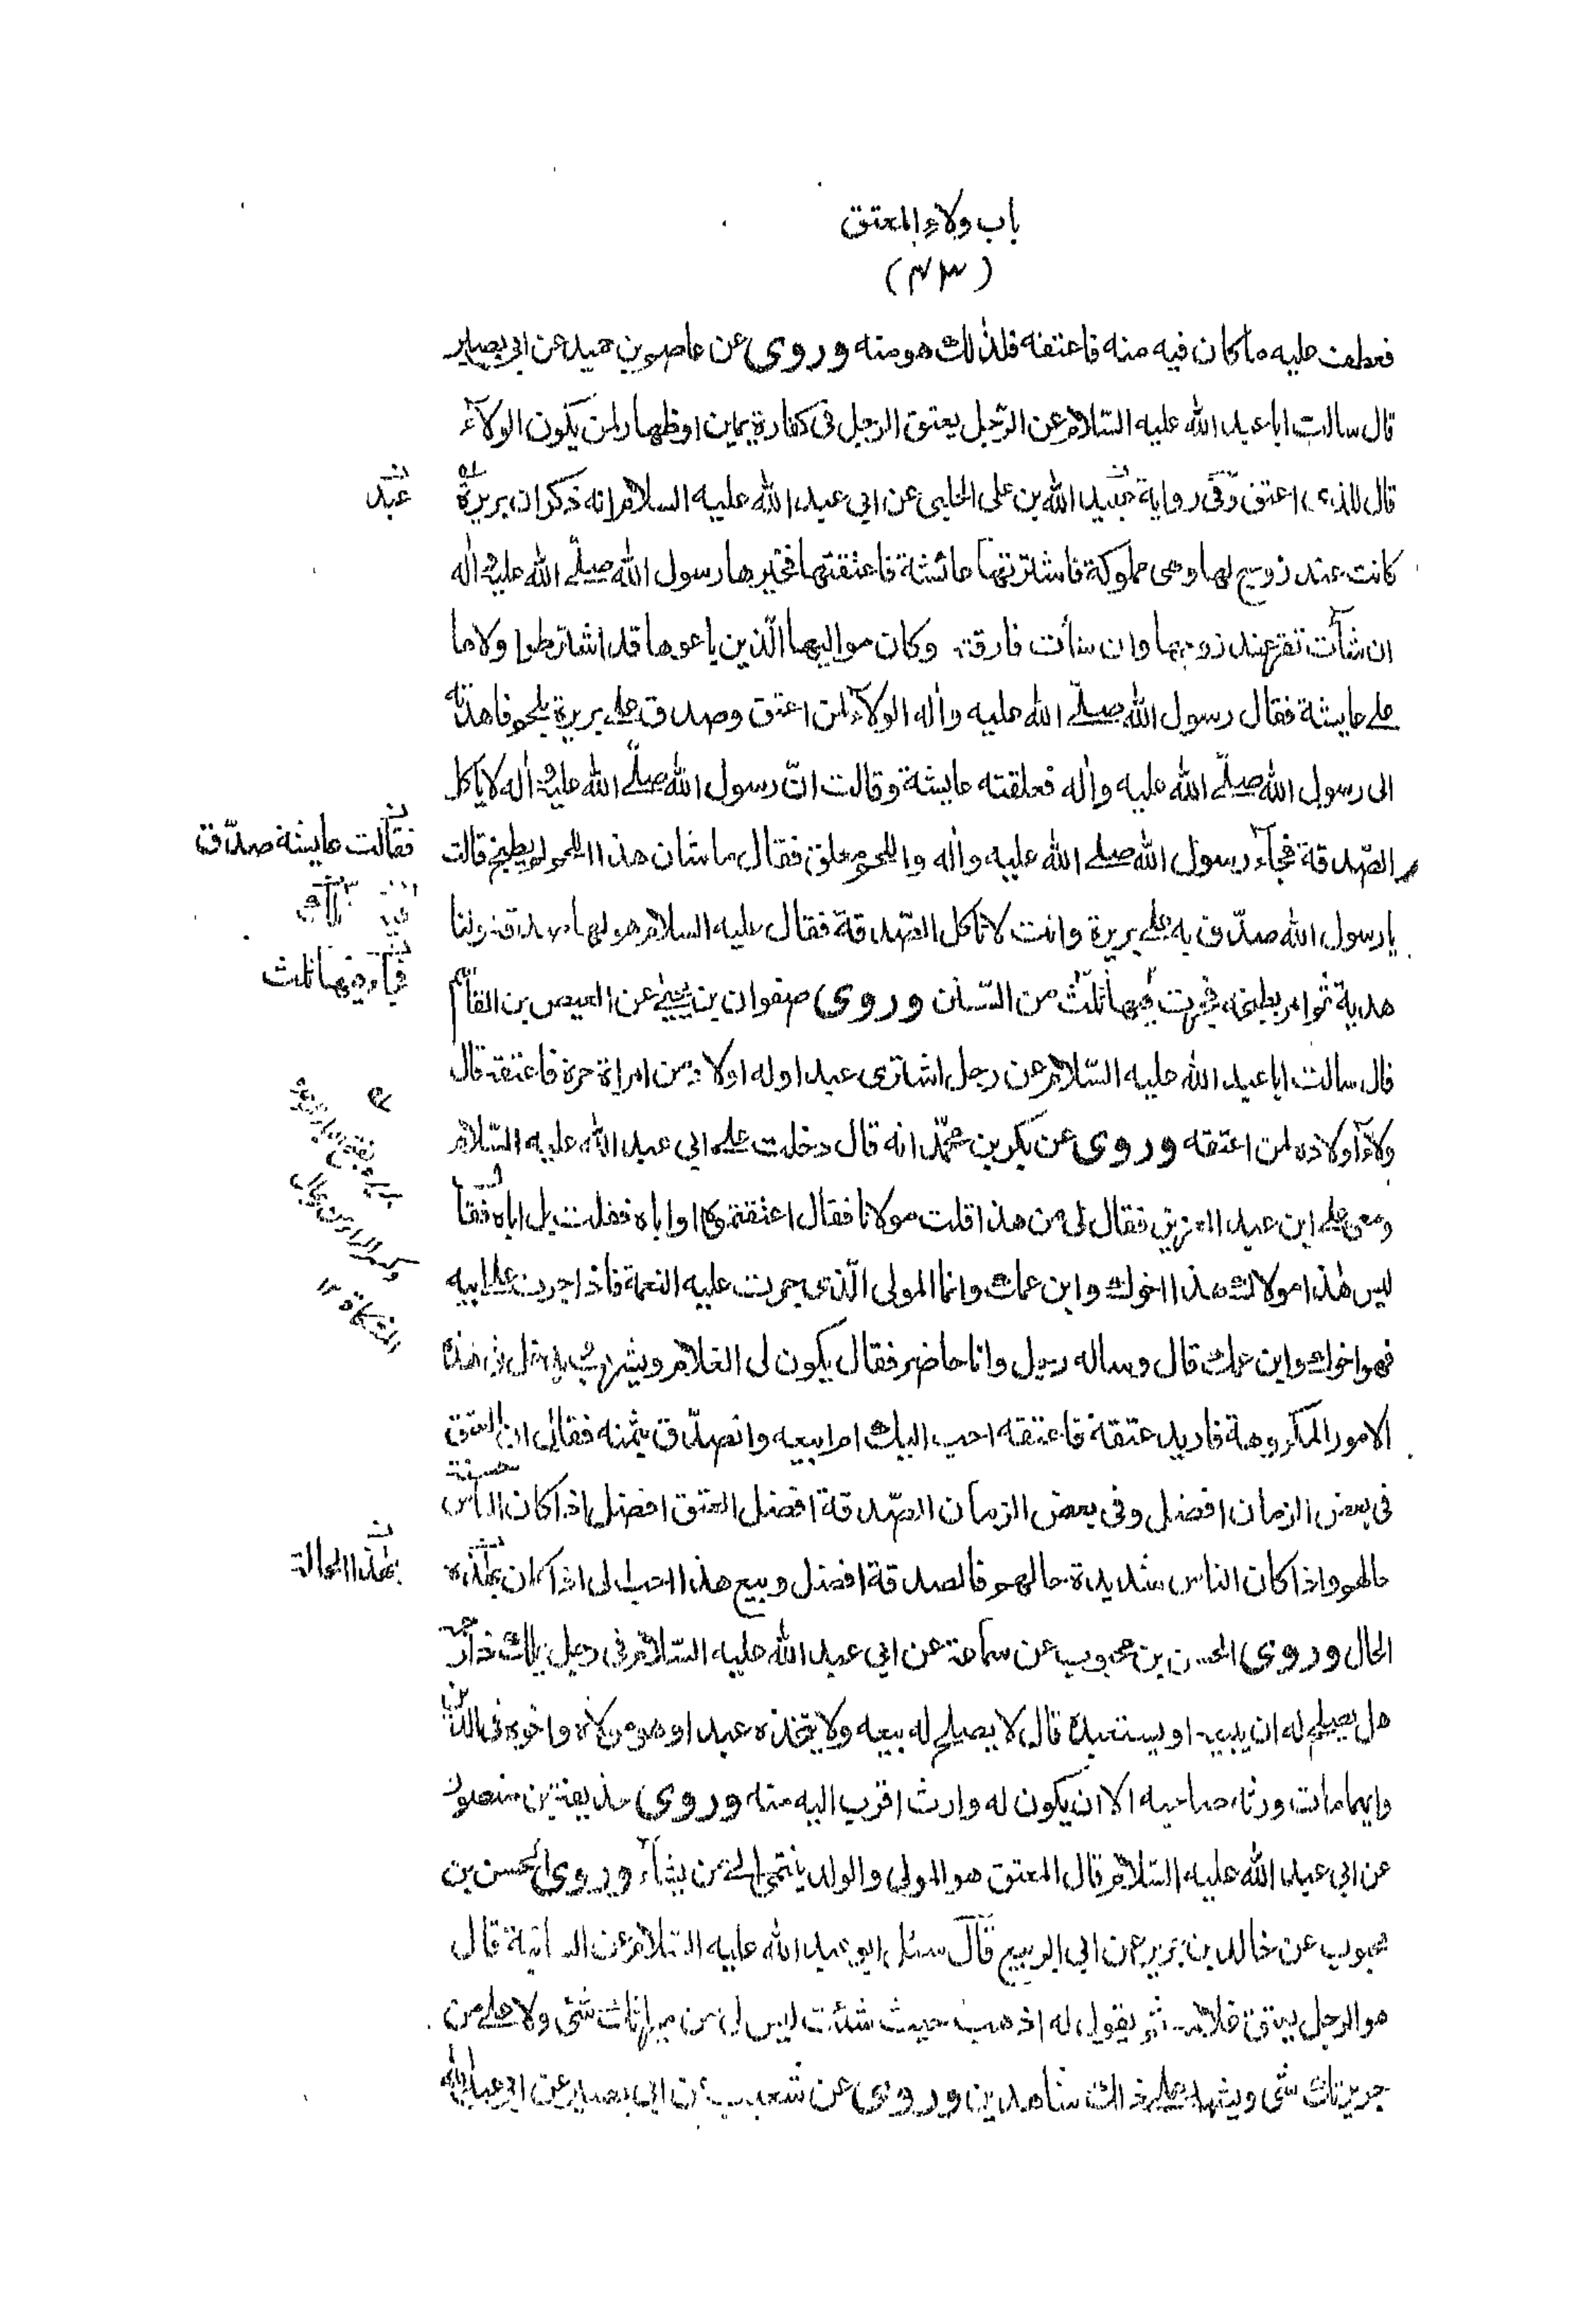 باب ولاء المعتق
(۴۳)
فعطفت عليه ما كان فيه منه فاعتقه فلذلك هو منه وروى عن عاصم بن حميد عن ابى بصير
قال سالت ابا عبد الله عليه السّلام عن الرّجل يعتق الرجل فى كفارة يمين او ظهار لمن يكون الولآء
قال للذى اعتق وفى رواية عبيد الله بن على الحلبى عن ابى عبد الله عليه السلام انه ذكر ان بريرة
عبد
كانت عند زوج لها وهى مملوكة فاشترتها عائشة فاعتقتها فخيرها رسول الله صلّے الله عليه واله
ان شآئت تقر عند زوجها وان شاءت فارقته وكان مواليها الّذين باعوها قد اشترطوا ولاءها
على عايشة فقال رسول الله صلّے الله عليه واله الولآء لمن اعتق وصدق على بريرة بلحم فاهدته
الى رسول الله صلّے الله عليه واله فعلقته عايشة وقالت انّ رسول الله صلّے الله عليه واله لا ياكل
الصّدقة فجآء رسول الله صلے الله عليه واله واللحم معلق فقال ما شان هذا اللحم لم يطبخ قالت
فقالت عايشة صدّق
يا رسول الله صدّق به على بريرة وانت لا تاكل الصّدقة فقال عليه السلام هو لها صدقة ولنا
هدية ثم امر بطبخه فجرت فيها ثلث من السّنن وروى صفوان بن يحيى عن العيص بن القاسم
فجآء فيها ثلث
قال سالت ابا عبد الله عليه السّلام عن رجل اشترى عبدا وله اولاد من امراة حرة فاعتقه قال
ولآء اولاده لمن اعتقه وروى عن بكر بن محمّد انه قال دخلت على ابى عبد الله عليه السّلام
ومعى على ابن عبد العزيز فقال لى من هذا قلت مولانا فقال اعتقتموه او اباه فقلت بل اباه فقال
ليس هذا مولاك هذا اخوك وابن عمك وانما المولى الّذى جرت عليه النعمة فاذا جرت على ابيه
فهو اخوك وابن عمك قال وساله رجل وانا حاضر فقال يكون لى الغلام ويشرب ويدخل فى هذه
الامور المكروهة فاريد عتقه فاعتقه احب اليك ام ابيعه واتصدّق بثمنه فقال ان العتق
فى بعض الزمان افضل وفى بعض الزمان الصّدقة افضل العتق افضل اذا كان الناس حسنة
حالهم واذا كان الناس شديدة حالهم فالصدقة افضل وبيع هذا احب الى اذا كان بهذه
بهذا الحالة
الحال وروى الحسن بن محبوب عن سماعة عن ابى عبد الله عليه السّلام فى رجل يملك ذا رحمه
هل يصلح له ان يبيعه او يستعبده قال لا يصلح له بيعه ولا يتخذه عبدا وهو مولاه واخوه فى الدّين
وايهما مات ورثه صاحبه الا ان يكون له وارث اقرب اليه منه وروى حذيفة بن منصور
عن ابى عبد الله عليه السّلام قال المعتق هو المولى والولد ينتمى الى من يشآء وروى الحسن بن
محبوب عن خالد بن جرير عن ابى الربيع قال سئل ابو عبد الله عليه السّلام عن السائبة قال
هو الرجل يعتق غلامه ثم يقول له اذهب حيث شئت ليس لى من ميراثك شئ ولا على من
جريرتك شئ ويشهد على ذلك شاهدين وروى عن شعيب عن ابى بصير عن ابى عبد الله